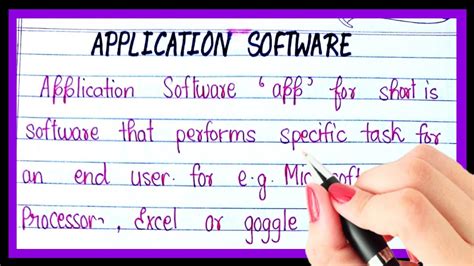 APPLICATION SOFTWARE
Application Software 'app' for short is
software that performs specific task for
an end user. for e.g. Mic soft
Processor, Excel or goggle